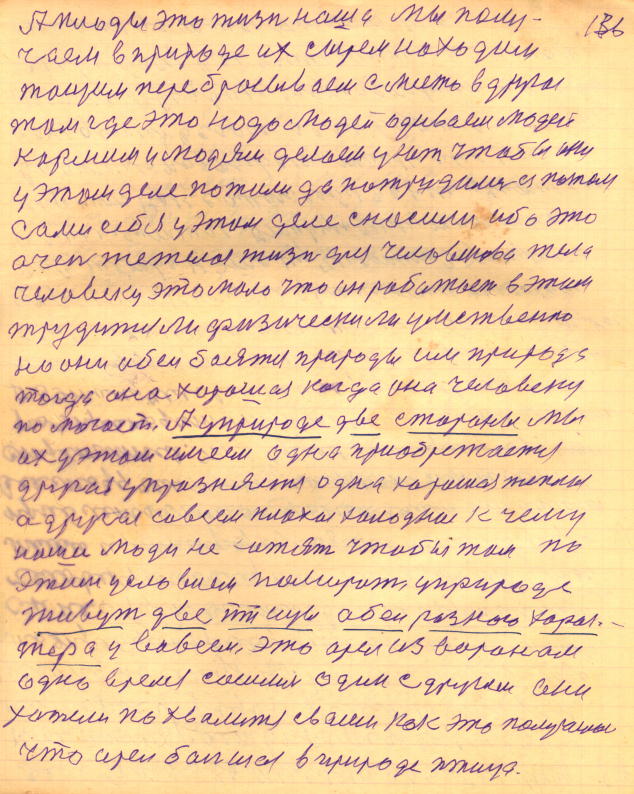 136
А плоды это жизн наша мы полу-
чаем в природе их сырем находим
тощим перебрасиваем с место в другое
там где это надо людей одиваем людей
кормим и людям делаем уют чтобы они
у этом деле пожили да потрудилися потом
сами себя у этом деле сносили ибо это
очен тяжелоя жизн для человекова тела
человеку это мало что он работает в этим
трудится ли физически ли умственно
но они обеи боятся природы им природа
тогда она хорошая когда она человеку
помогает. А у природе две стороны мы
их у этом имеем одна приобретается
другая упразняется одна хорошая теплоя
а другоя совсем плохоя холодноя к чему
наши люди не хотят чтобы там по
этим условием помират, у природе
живут две птицы обеи разного харак-
тера у во всем. Это орел из вораном
одно время сошлися один с другем они
хотели похвалится своим как это получается
что орел болшая в природе птица.